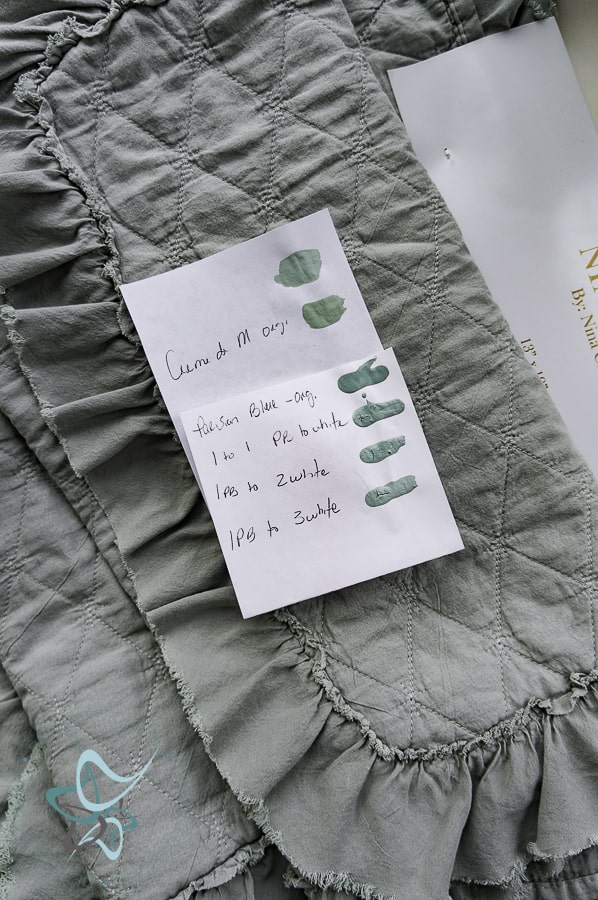 Creme de M Org.
Parisian Blue - Org.
1 to 1 PB to white
1 PB to 2 white
1 PB to 3 white
By: Nina
13" x